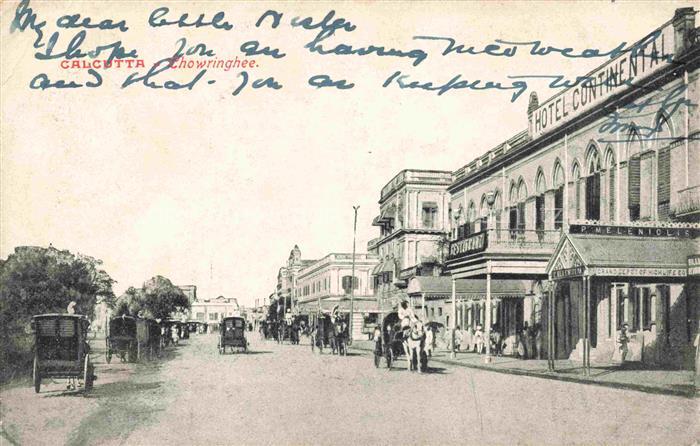 My dear little Nester
I hope you are having nice weather
and that you are keeping well
CALCUTTA - Chowringhee.
HOTEL CONTINENTAL
RESTAURANT
P. MELENIOLIS
GRAND DEPOT OF HIGH LIFE